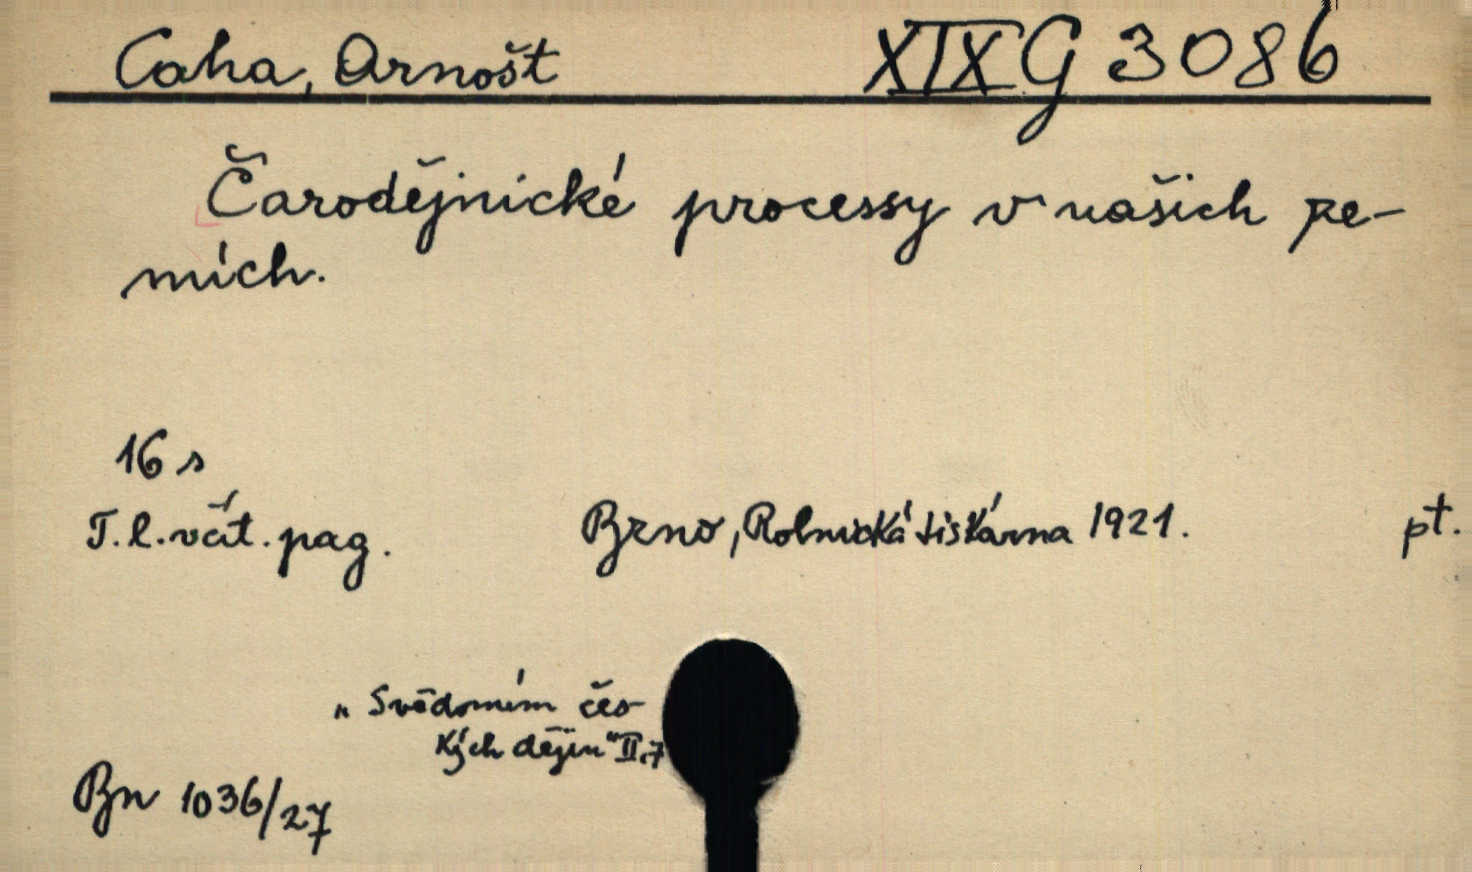 Caha, Arnošt XIX G 3086
Čarodějnické processy v našich ze-
mích.
16 s
T. l. včít. pag. Brno, Rolnická tiskárna 1921. pt.
„Svědomím čes-
kých dějin" II.7
Bn 1036/27